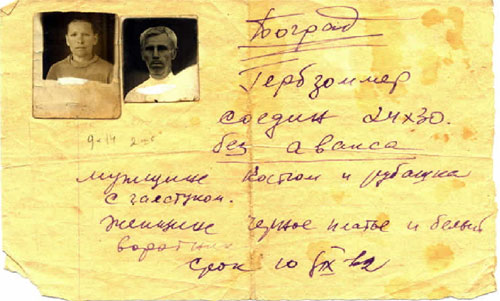 Боград
Гербзоммер
соедин 24х30.
без аванса
мужщине костюм и рубашка
с галстуком.
женщине черное платье и белый
воротник
срок 10 IX